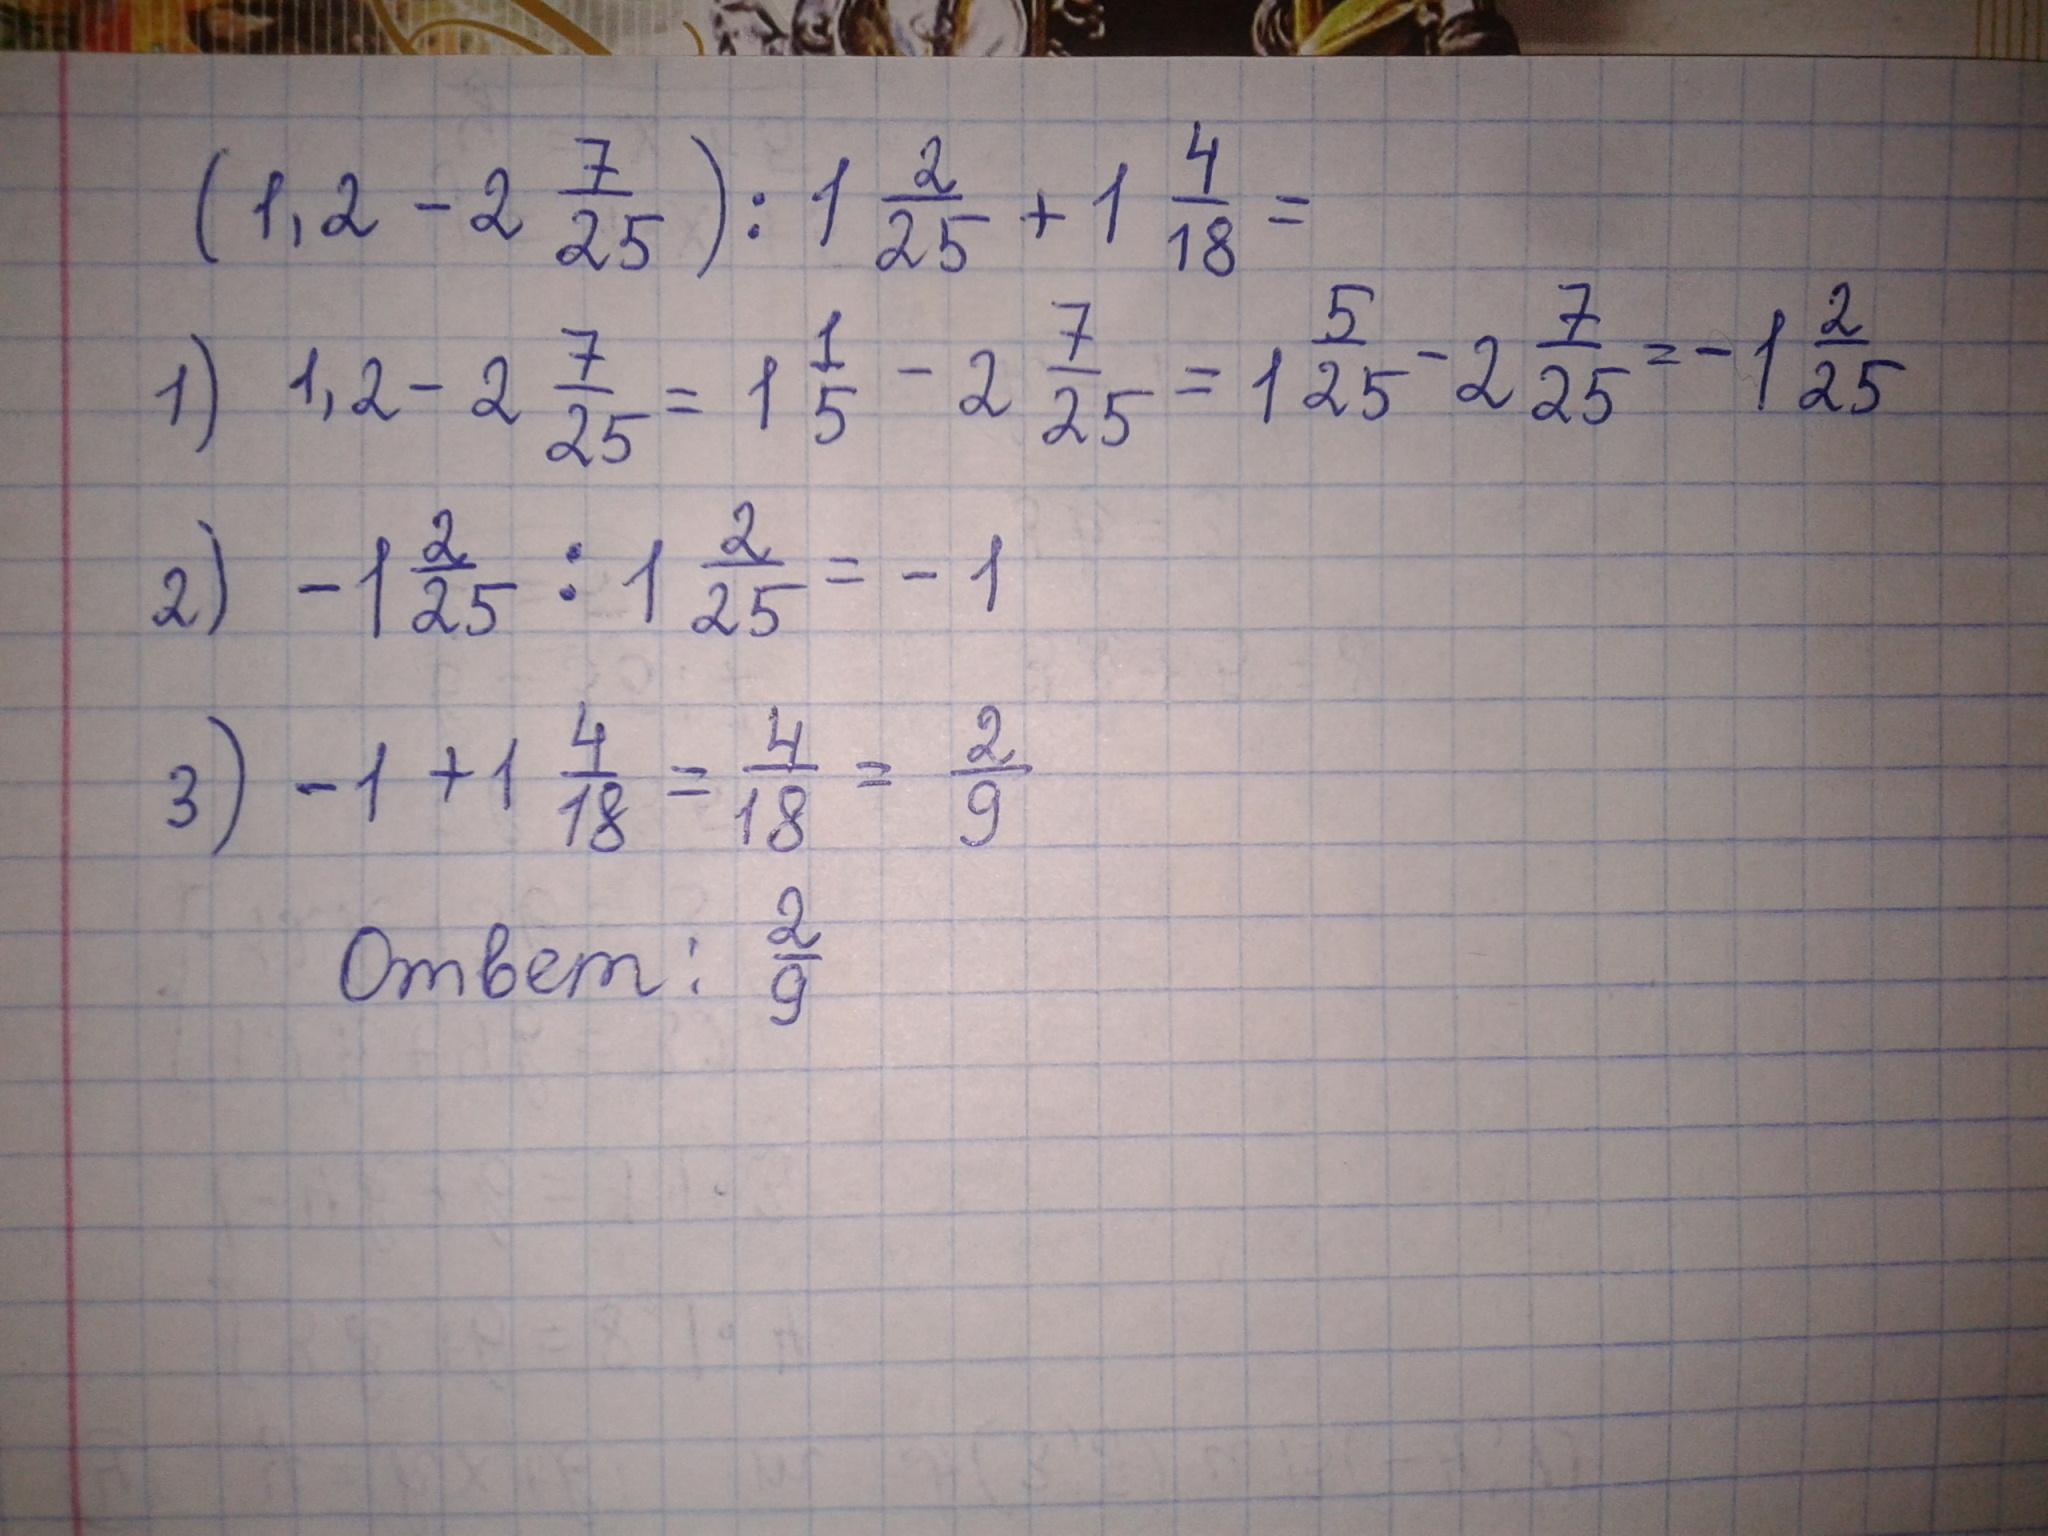 (1,2 - 2 7/25) : 1 2/25 + 1 4/18 =
1) 1,2 - 2 7/25 = 1 1/5 - 2 7/25 = 1 5/25 - 2 7/25 = - 1 2/25
2) - 1 2/25 : 1 2/25 = - 1
3) - 1 + 1 4/18 = 4/18 = 2/9
Ответ: 2/9